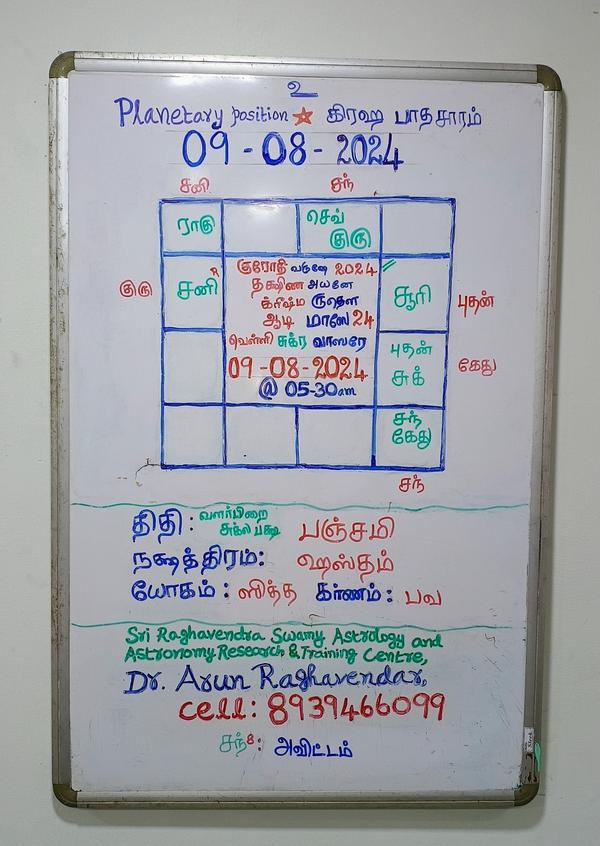 உ
Planetary position ☆ கிரஹ பாதசாரம்
09-08-2024
சனி சந்
ராகு செவ் குரு
குரு சனி R சூரி புதன்
குரோதி வருஷே 2024
தக்ஷிண அயனே
க்ரிஷ்ம ருதௌ
ஆடி மாஸே 24
வெள்ளி சுக்ர வாஸரே
09-08-2024
@ 05-30am
புதன் சுக் கேது
சந் கேது
சந்
திதி: வளர்பிறை சுக்ல பக்ஷ பஞ்சமி
நக்ஷத்திரம்: ஹஸ்தம்
யோகம்: ஸித்த கரணம்: பவ
Sri Raghavendra Swamy Astrology and
Astronomy Research & Training Centre,
Dr. Arun Raghavendar,
Cell: 8939466099
சந் 8: அவிட்டம்